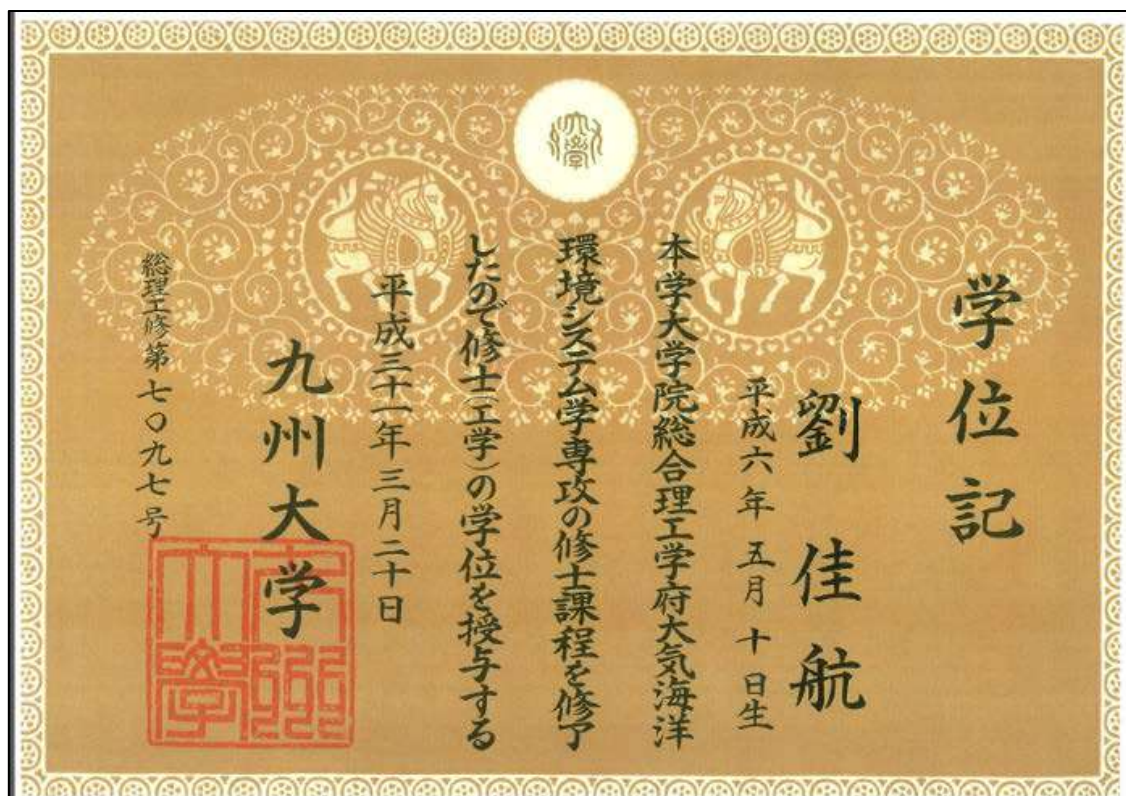 学位記
劉佳航
平成六年五月十日生
本学大学院総合理工学府大気海洋
環境システム学専攻の修士課程を修了
したので修士(工学)の学位を授与する
平成三十一年三月二十日
九州大学
総理工修第七〇九七号